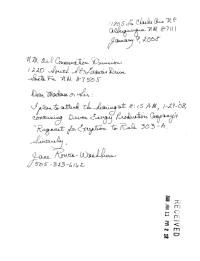 11835 La Charles Ave NE
Albuquerque NM 87111
January 9, 2008
N.M. Oil Conservation Division
1220 South St. Francis Drive
Santa Fe NM 87505
Dear Madam or Sir:
I plan to attend the hearing at 8:15 AM, 1-29-08,
concerning Devon Energy Production Company's
Request for Exception to Rule 303-A
Sincerely,
Jane Rowe-Washburn
505-323-6162
RECEIVED